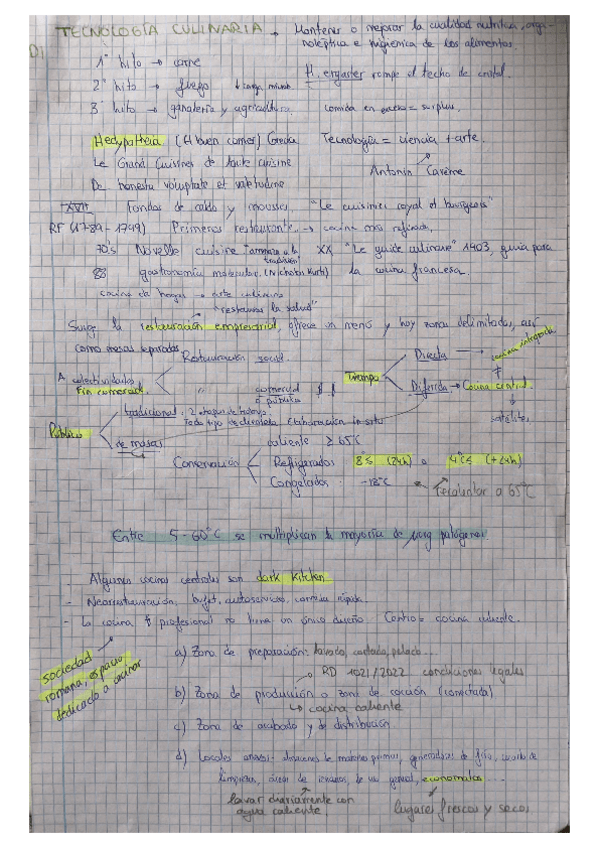 TECNOLOGÍA CULINARIA → Mantener o mejorar la cualidad nutritiva, orga-
D1 noléptica e higiénica de los alimentos.
1º hito → carne
H. ergaster rompe el techo de cristal.
2º hito → fuego
3º hito → ganadería y agricultura. comida en exceso = surplus.
Hedypatheia (El buen comer) Grecia Tecnología = ciencia + arte.
Le Grand Cuisiner de toute cuisine
Antonin Carême
De honesta voluptate et valetudine
XVII Fondas de caldo y mousses, "Le cuisinier royal et bourgeois"
RF (1789 - 1799) Primeros restaurante → cocina más refinada.
70's Novelle cuisine XX "Le guide culinaire" 1903, guía para
88 gastronomía molecular. (Nicholas Kurti) la cocina francesa.
cocina de hogar → arte culinario
"restaurar la salud"
Surge la restauración empresarial, ofrece un menú y hay zonas delimitadas, así
como mesas separadas.
Restauración social.
Directa → cocina integrada
A colectividades
Fin comercial.
" comercial $ $
o pública
Tiempo
Diferida → Cocina central.
satélites
Público
tradicional: 2 etapas de trabajo.
Todo tipo de clientela. Elaboración in situ
de masas
caliente ≥ 65ºC
Conservación Refrigerados 8ºC (24h) o 4ºC (+24h)
Congelados -18ºC Recalentar a 65ºC
Entre 5-60ºC se multiplican la mayoría de μorg patógenos
- Algunas cocinas centrales son dark kitchen
- Neorestauración, bufet, autoservicio, comida rápida
- La cocina profesional no tiene un único dueño. Centro = cocina caliente.
sociedad
romana, espacio
dedicado a cocinar
a) Zona de preparación: lavado, cortado, pelado...
RD 1021/2022 condiciones legales
b) Zona de producción o zona de cocción (conectada)
↳ cocina caliente
c) Zona de acabado y de distribución
d) Locales anexos - almacenes de materias primas, generadores de frío, cuarto de
limpieza, áreas de uso general, economatos...
lavar diariamente con
agua caliente
lugares frescos y secos